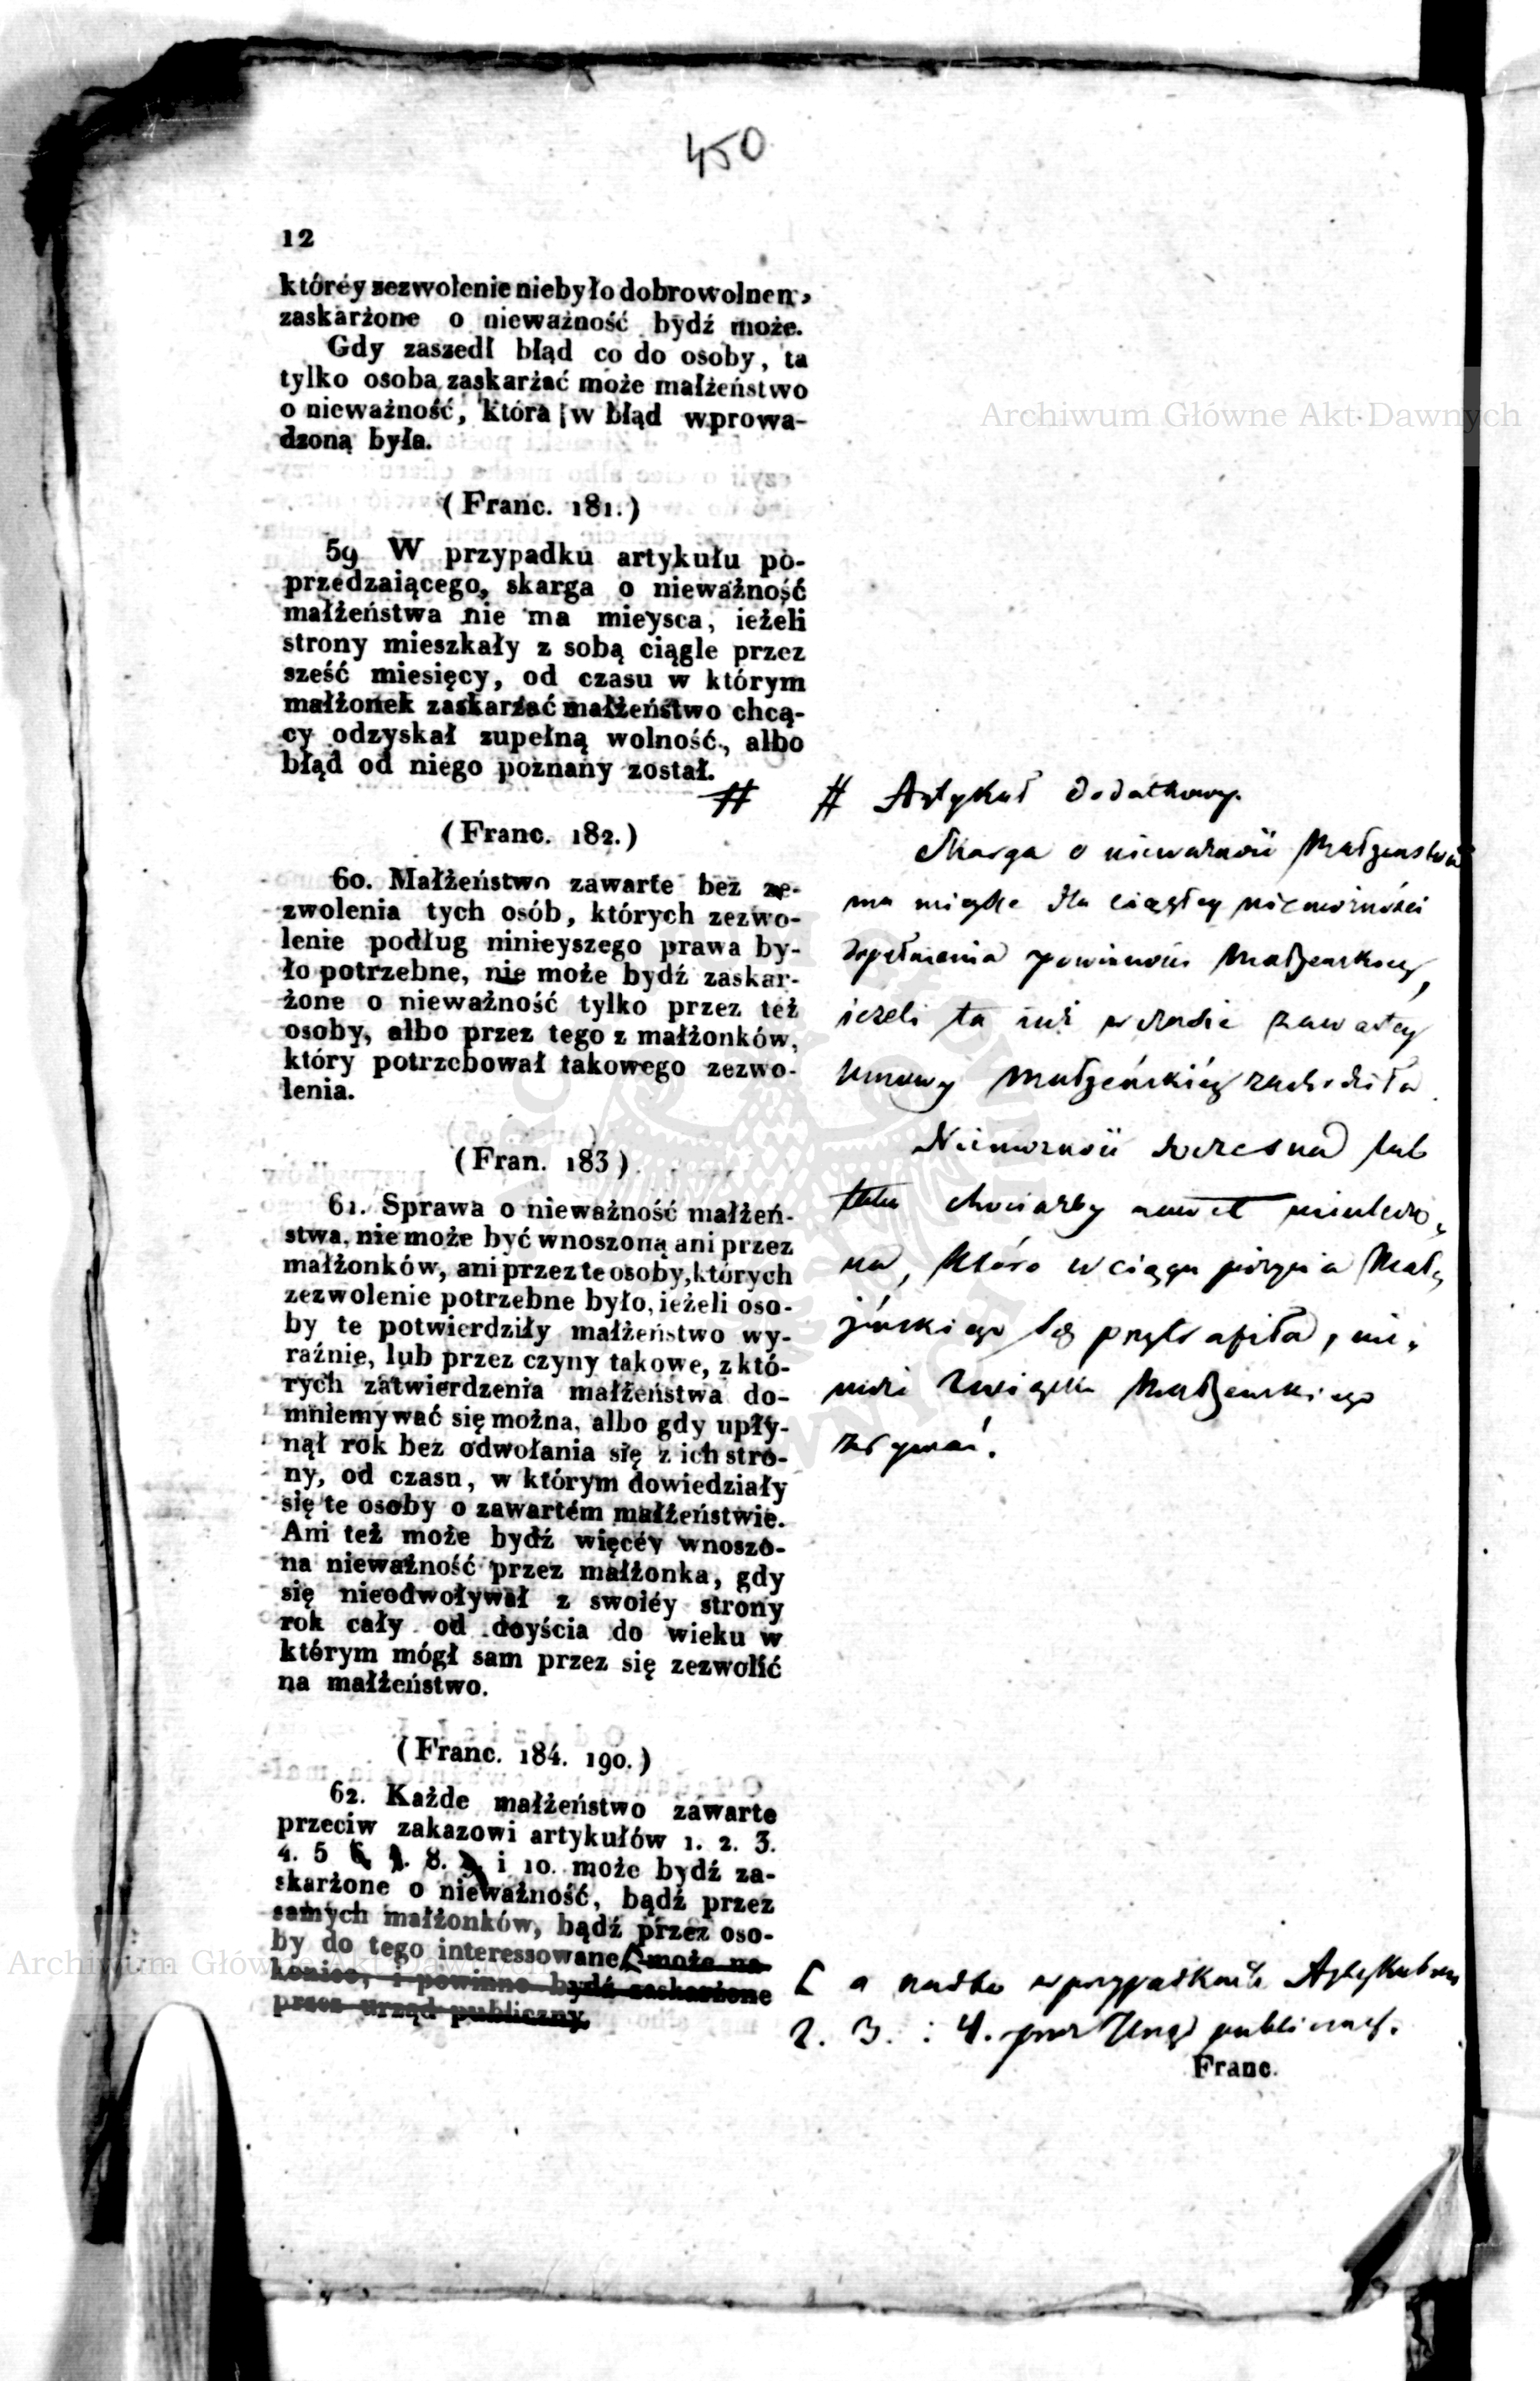 450
12
któréy zezwolenie niebyło dobrowolnem,
zaskarżone o nieważność bydź może.
Gdy zaszedł błąd co do osoby, ta
tylko osoba zaskarżać może małżeństwo
o nieważność, która w błąd wprowa-
dzoną była.
(Franc. 181.)
59 W przypadku artykułu po-
przedzaiącego, skarga o nieważność
małżeństwa nie ma mieysca, ieżeli
strony mieszkały z sobą ciągle przez
sześć miesięcy, od czasu w którym
małżonek zaskarżać małżeństwo chcą-
cy odzyskał zupełną wolność, albo
błąd od niego poznany został.
#
(Franc. 182.)
60. Małżeństwo zawarte bez ze-
zwolenia tych osób, których zezwo-
lenie podług ninieyszego prawa by-
ło potrzebne, nie może bydź zaskar-
żone o nieważność tylko przez też
osoby, albo przez tego z małżonków,
który potrzebował takowego zezwo-
lenia.
(Fran. 183)
61. Sprawa o nieważność małżeń-
stwa, nie może być wnoszoną ani przez
małżonków, ani przez te osoby, których
zezwolenie potrzebne było, ieżeli oso-
by te potwierdziły małżeństwo wy-
raźnie, lub przez czyny takowe, z któ-
rych zatwierdzenia małżeństwa do-
mniemywać się można, albo gdy upły-
nął rok bez odwołania się z ich stro-
ny, od czasu, w którym dowiedziały
się te osoby o zawartém małżeństwie.
Ani też może bydź więcéy wnoszo-
na nieważność przez małżonka, gdy
się nieodwoływał z swoiéy strony
rok cały od doyścia do wieku w
którym mógł sam przez się zezwolić
na małżeństwo.
(Franc. 184. 190.)
62. Każde małżeństwo zawarte
przeciw zakazowi artykułów 1. 2. 3.
4. 5 6. 7. 8. 9. i 10. może bydź za-
skarżone o nieważność, bądź przez
samych małżonków, bądź przez oso-
by do tego interessowane [ może na-
koniec, i powinno bydź zaskarżone
przez urząd publiczny.
# Artykuł dodatkowy.
Skarga o nieważność Małżeństwa
ma mieysce dla ciągłey niemożności
dopełnienia powinności Małżeńskiey,
ieżeli ta iuż w czasie zawartey
Umowy Małżeńskiéy zachodziła.
Niemożność doczesna lub
taka chociażby nawet nieuleczo-
na, która w ciągu pożycia Mał-
żeńskiego się przytrafiła, nie-
może związku Małżeńskiego
zrywać.
[ a nadto w przypadkach Artykułów
2. 3. i 4. przez Urząd publiczny.
Franc.
Archiwum Główne Akt Dawnych
Archiwum Główne Akt Dawnych